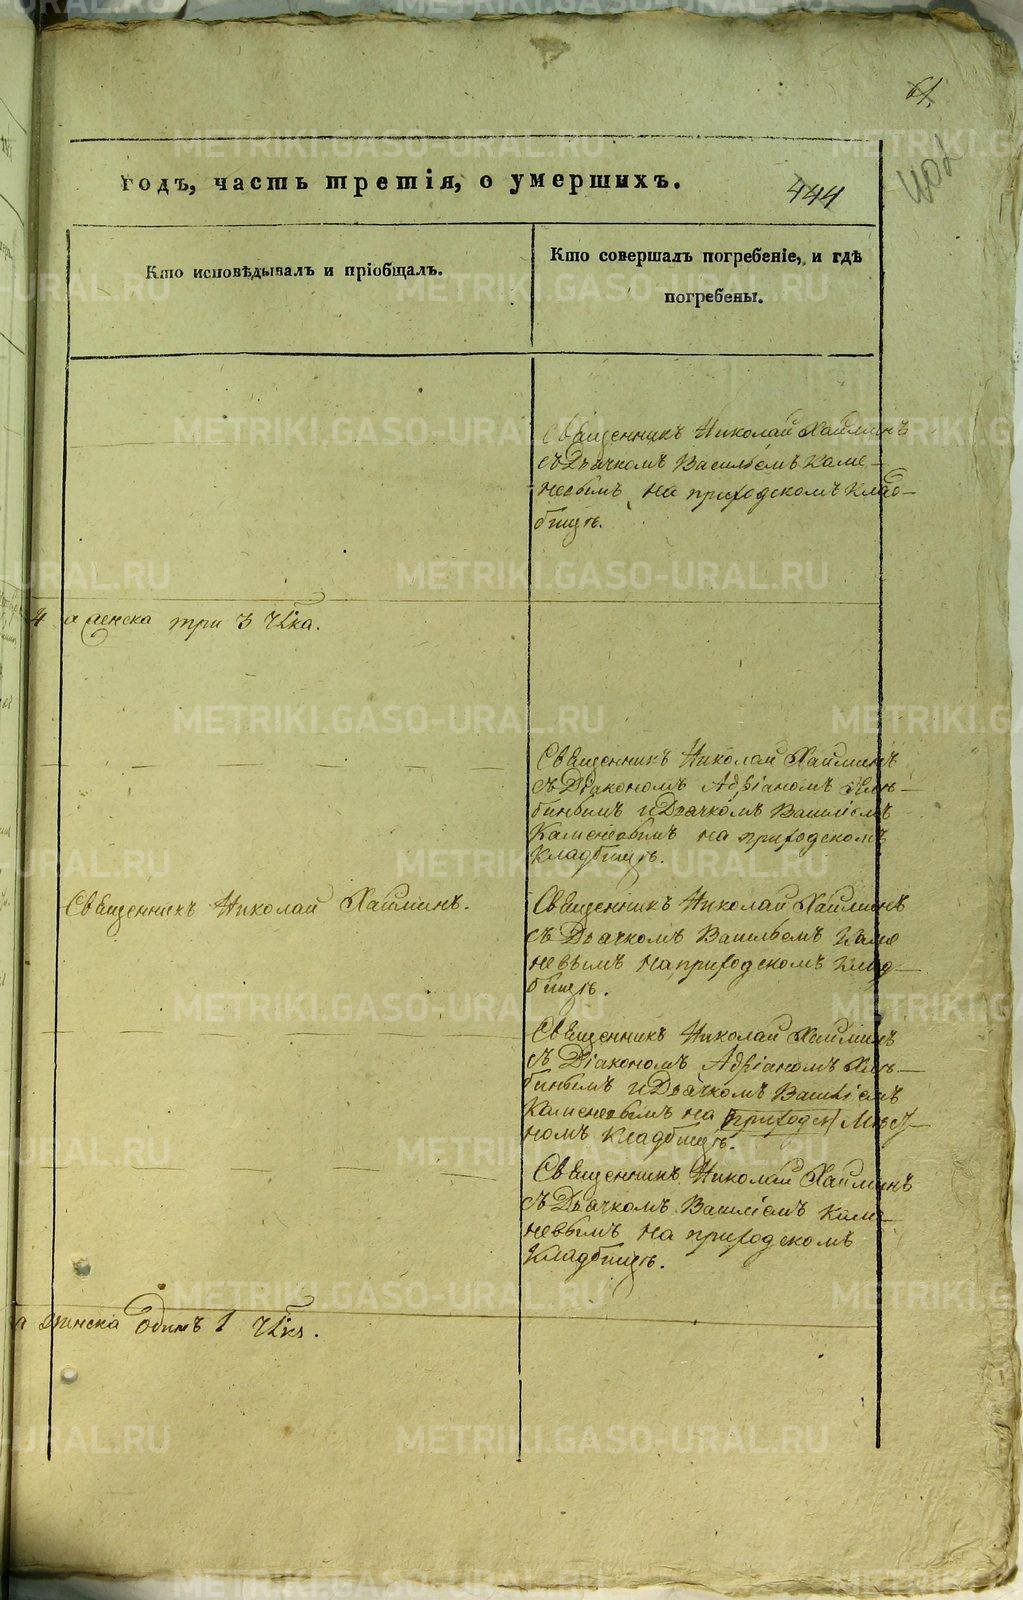 61
402
годъ, часть третія, о умершихъ.
444
Кто исповѣдывалъ и пріобщалъ.
Кто совершалъ погребеніе, и гдѣ
погребены.
Священникъ Николай Хайминъ
съ Дьячкомъ Васильемъ Каме-
невымъ на приходскомъ клад-
бищѣ.
женска три 3 чка.
Священникъ Николай Хайминъ
съ Діакономъ Адріаномъ
и Дьячкомъ Василіемъ
Каменевымъ на приходскомъ
кладбищѣ.
Священникъ Николай Хайминъ.
Священникъ Николай Хайминъ
съ Дьячкомъ Васильемъ Каме
невымъ на приходскомъ клад-
бищѣ.
Священникъ Николай Хайминъ
съ Діакономъ Адріаномъ
и Дьячкомъ Василіемъ
Каменевымъ на приходск Мѣст-
номъ кладбищѣ.
Священникъ Николай Хайминъ
съ Дьячкомъ Василіемъ Каме-
невымъ на приходскомъ
кладбищѣ.
а женска одинъ 1 чкъ.
METRIKI.GASO-URAL.RU